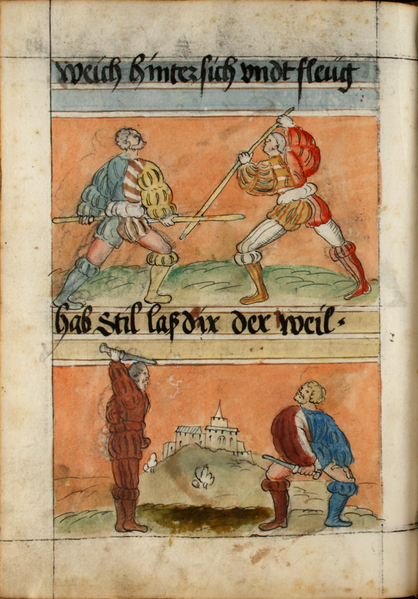 Weich hintersich vndt fleüg
hab Stil laß dir der weil.